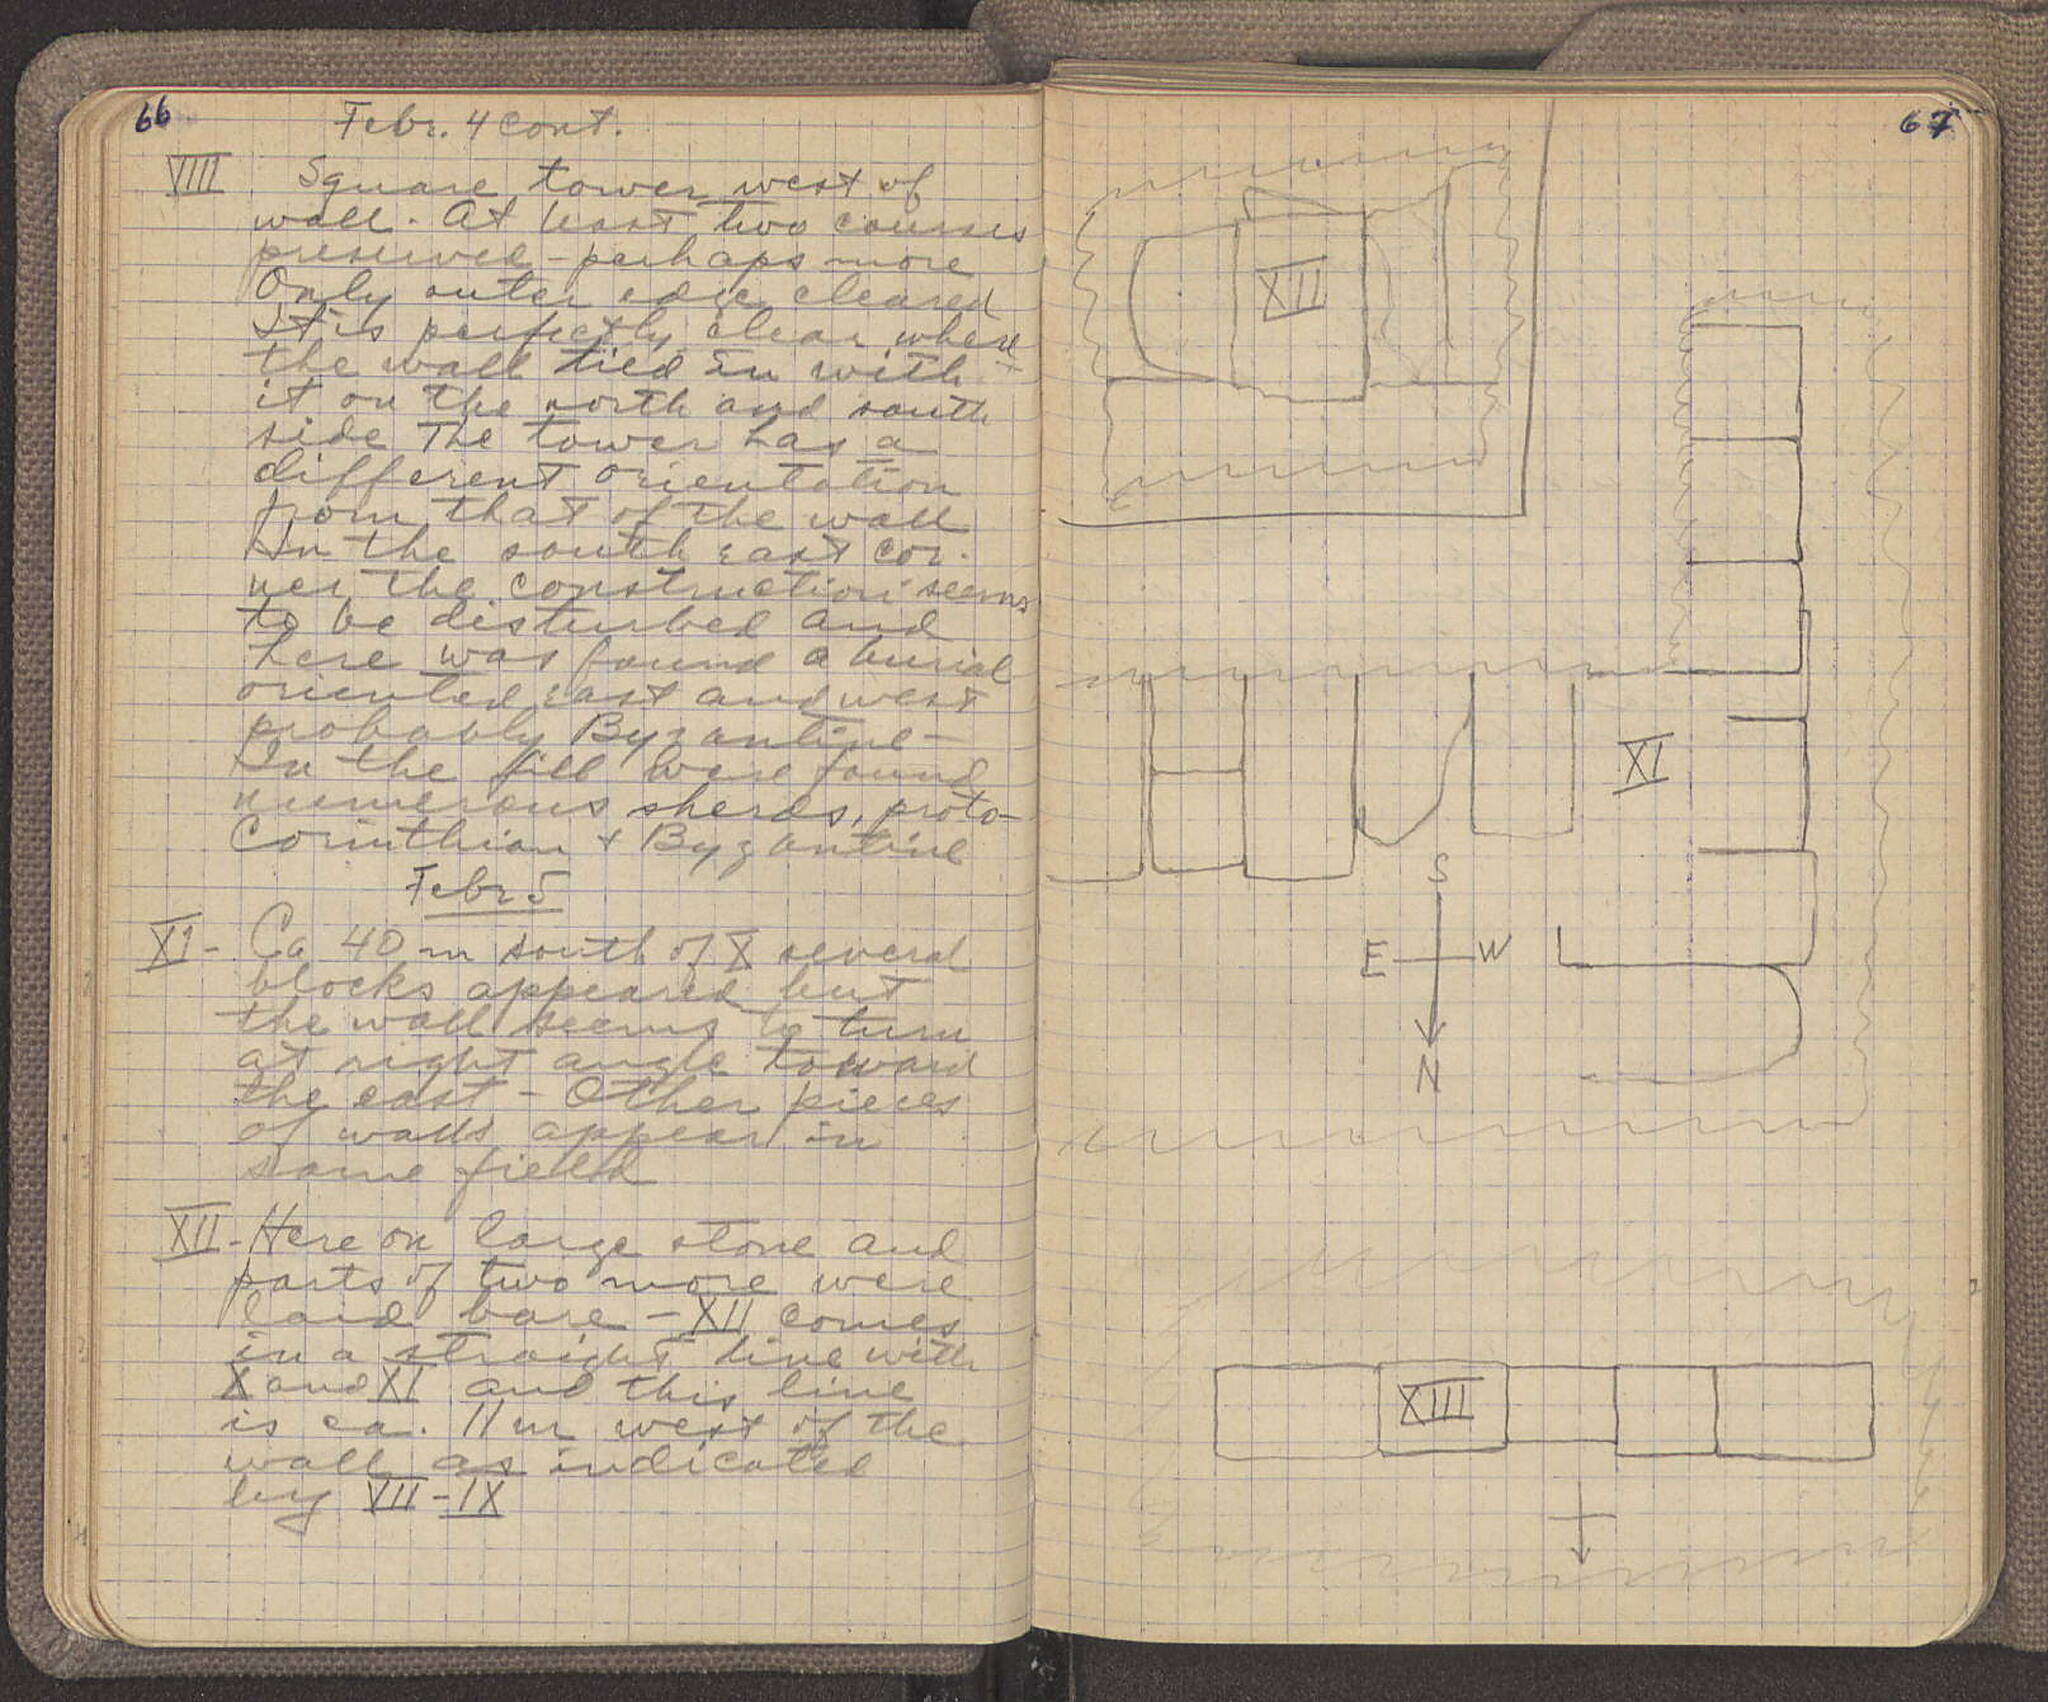 66
Febr. 4 cont.
VIII Square tower west of
wall. At least two courses
preserved - perhaps more
Only outer edge cleared
It is perfectly clear where
the wall tied in with
it on the north and south
side The tower has a
different orientation
from that of the wall
In the south east cor-
ner the construction seems
to be disturbed and
here was found a burial
oriented east and west
probably Byzantine -
In the fill were found
numerous sherds, proto-
Corinthian + Byzantine
Febr 5
XI - Ca 40 m south of X several
blocks appeared but
the wall seems to turn
at right angle toward
the east - Other pieces
of walls appear in
same field
XII - Here on large stone and
parts of two more were
laid bare - XII comes
in a straight line with
X and XI and this line
is ca. 11 m west of the
wall as indicated
by VII - IX
67
XII
XI
S
E W
N
XIII